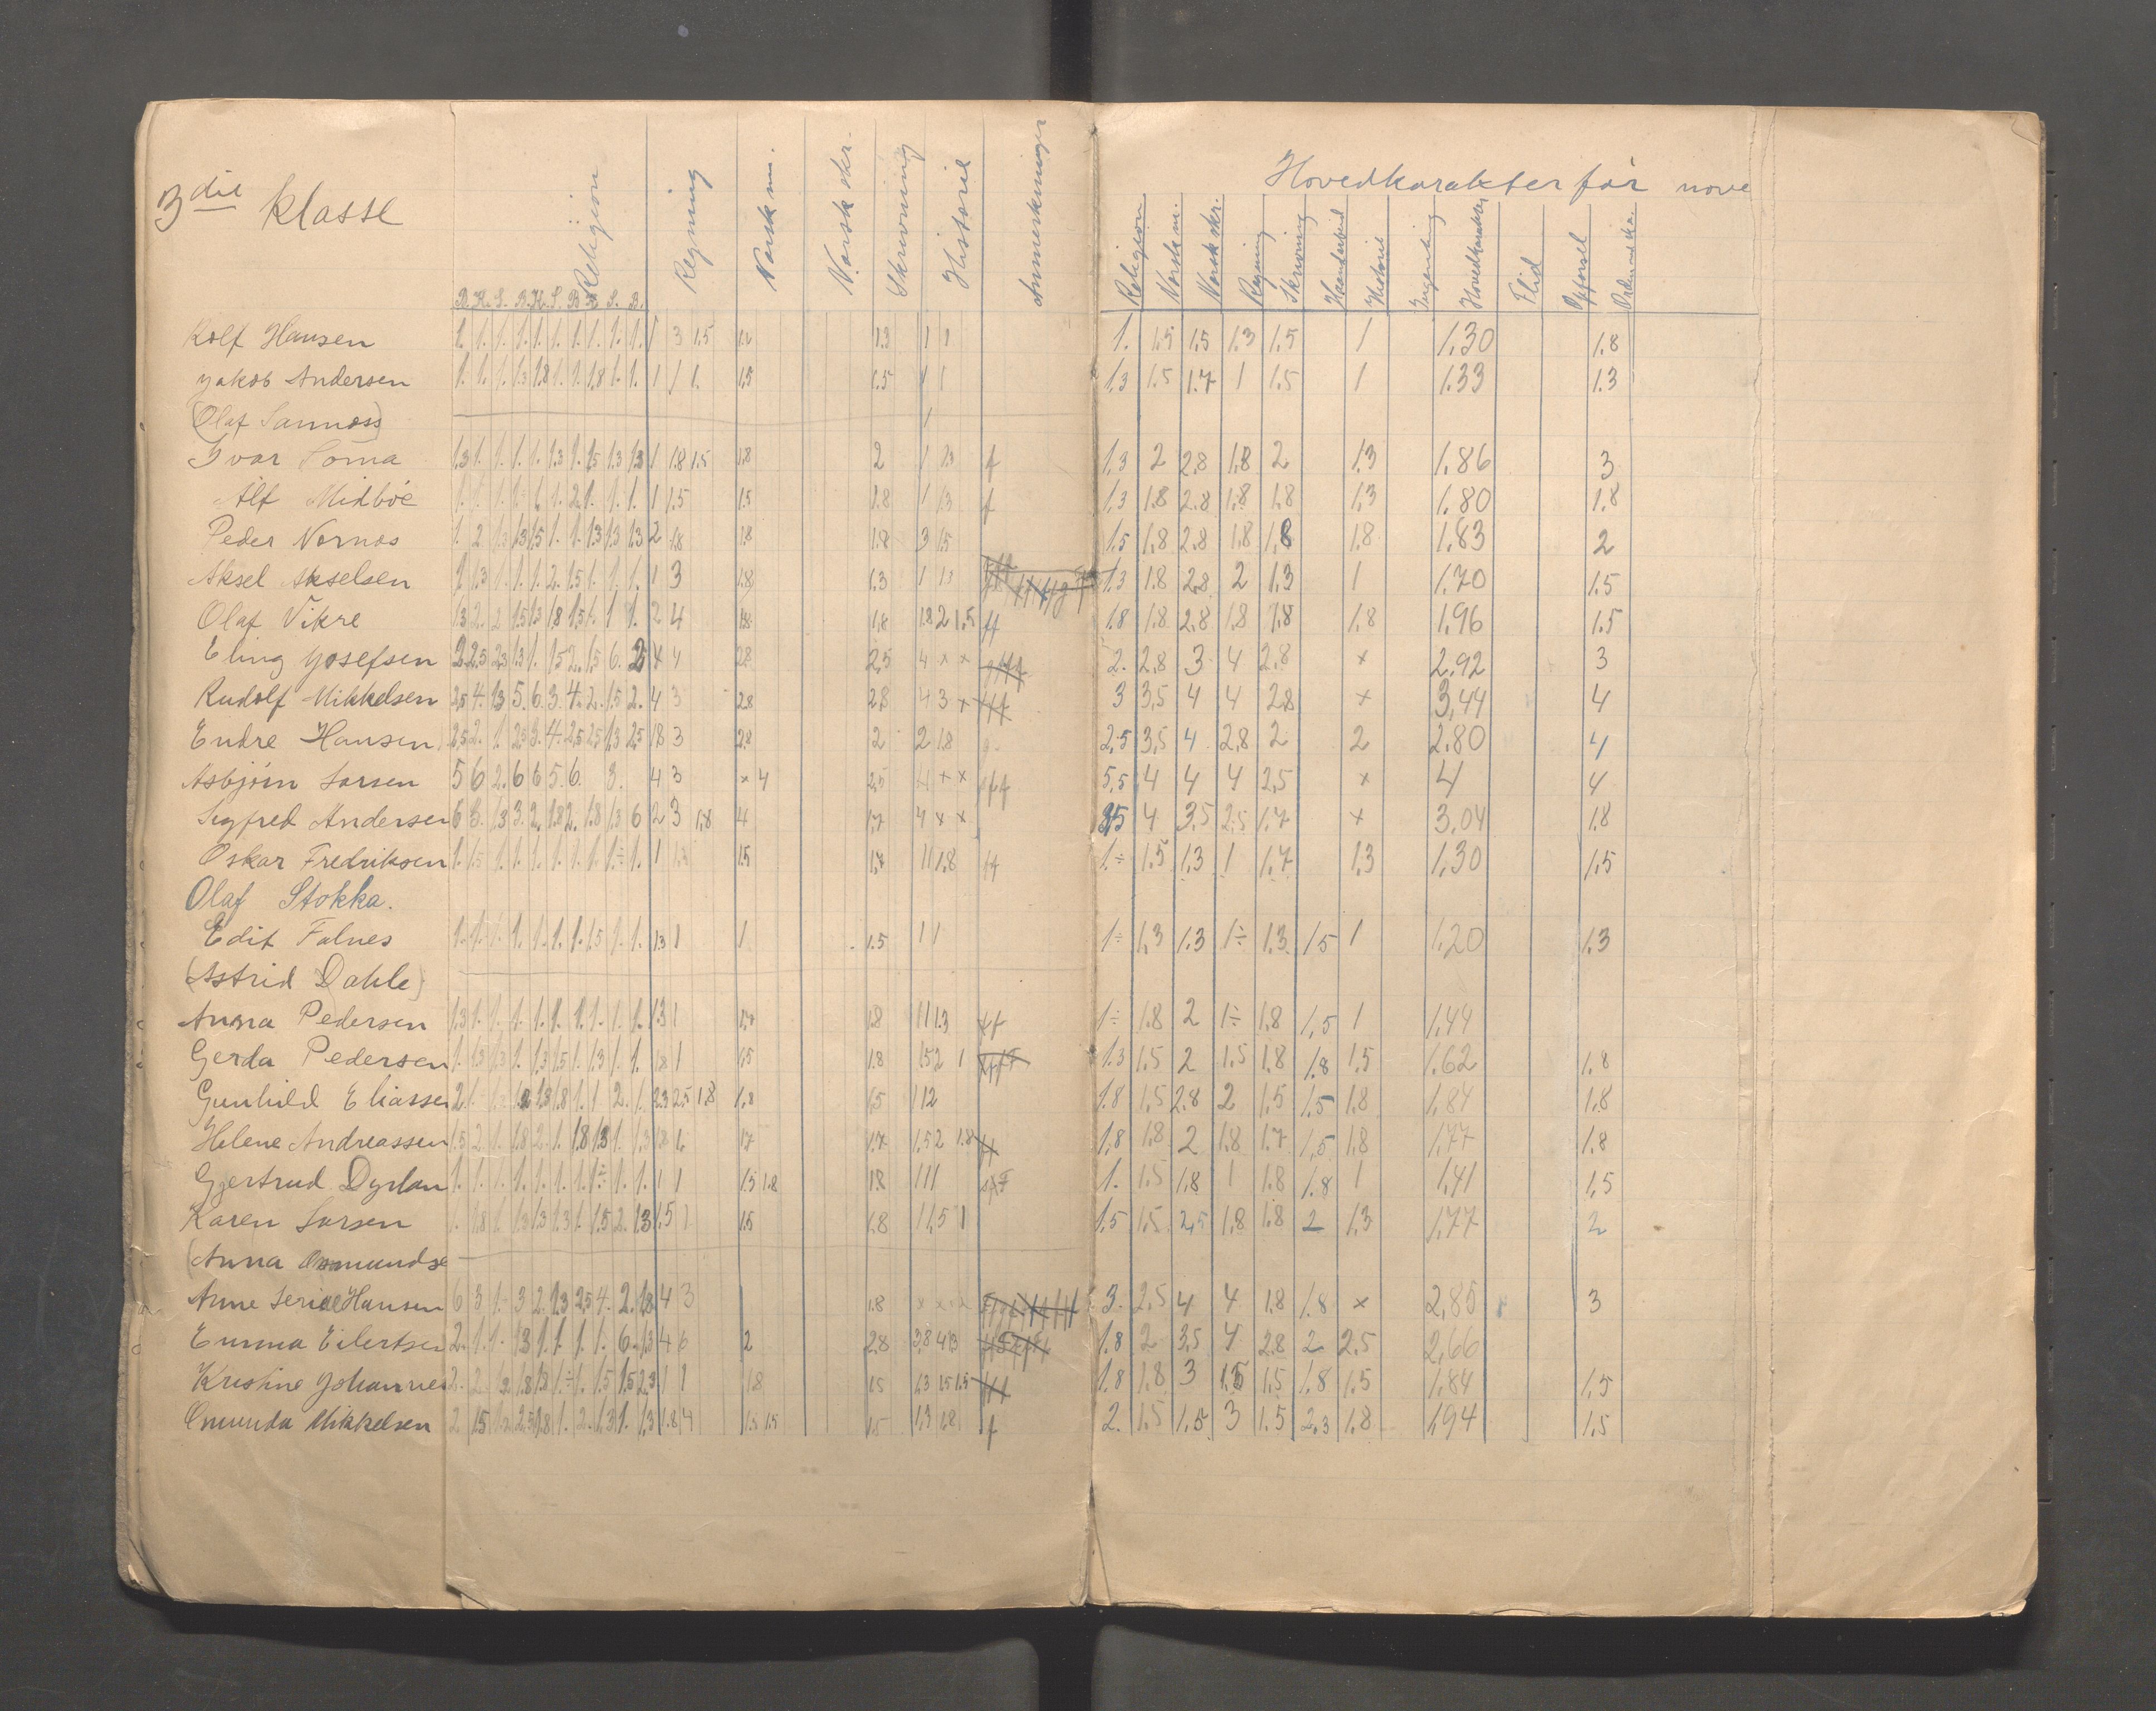 3die klasse
Religion Regning Norsk m. Norsk skr. Skrivning Historie Anmerkninger
Hovedkarakter for nove
Religion Norsk m. Norsk skr. Regning Skrivning Haandarbeid Historie Hovedkarakter Flid Opførsel
B. K. S. B. K. S. B. K. S. B.
Rolf Hansen 1. 1. 1. 1. 1. 1. 1. 1. 1. 1. 1 3 1.5 1.3 1 1 1. 1.5 1.5 1.3 1.5 1 1.30 1.8
Jakob Andersen 1. 1. 1. 1.3 1.8 1. 1. 1.8 1. 1. 1 1 1. 1.5 1.5 1 1 1.3 1.5 1.7 1 1.5 1 1.33 1.3
(Olaf Sannæss) 1
Ivar Soma 1.3 1. 1. 1. 1. 1.3 1. 1.5 1.3 1.3 1 1.8 1.5 1.8 2 1 1.3 f 1.3 2 2.8 1.8 2 1.3 1.86 3
Alf Midbøe 1. 1. 1. 1. 1. 2 1. 1. 1. 1 1.5 1.5 1.8 1 1.3 f 1.3 1.8 2.8 1.8 1.8 1.3 1.80 1.8
Peder Nornes 1. 2 1.3 1.3 1.5 1. 1. 1.3 1.3 1.3 2 1.8 1.8 1.8 3 1.5 1.5 1.8 2.8 1.8 1.8 1.8 1.83 2
Aksel Akselsen 1 1.3 1. 1. 1. 2. 1.5 1. 1. 1. 1 3 1.8 1.3 1 1.3 1.3 1.8 2.8 2 1.3 1 1.70 1.5
Olaf Vikre 1.3 2. 2 1.5 1.3 1.8 1.5 1. 1 1. 2 4 1.8 1.8 1.8 2 1.5 ff 1.8 1.8 2.8 1.8 1.8 1.8 1.96 1.5
Eling Josefsen 2. 2.5 2.3 1.3 1. 1.5 2. 1.5 6. 2.5 4 4 2.8 2.5 4 x x 2. 2.8 3 4 2.8 x 2.92 3
Rudolf Mikkelsen 2.5 4. 1.3 5. 6. 3. 4. 2. 1.5 2. 4 3 2.8 2.8 4 3 x fff 3 3.5 4 4 2.8 x 3.44 4
Endre Hansen 2.5 2. 1. 2.5 3. 4. 2.5 2.5 1.3 2.5 1.8 3 2.8 2 2 1.8 2.5 3.5 4 2.8 2 2 2.80 4
Asbjørn Larsen 5 6 2. 6 6 5. 6. 3. 4 3 x 4 2.5 4 x x fff 5.5 4 4 4 2.5 x 4 4
Sigfred Andersen 6 3. 1.3 3. 2. 1.8 2. 1.8 1.3 6 2 3 1.8 4 1.7 4 x x 3.5 4 3.5 2.5 1.7 x 3.04 1.8
Oskar Fredriksen 1. 1.5 1. 1. 1. 1. 1. 1. 1÷ 1. 1 1.5 1.7 1 1 1.8 ff 1÷ 1.5 1.3 1 1.7 1.3 1.30 1.5
Olaf Stokka.
Edit Falnes 1. 1. 1. 1. 1. 1. 1. 1.5 1. 1. 1.3 1 1 1.5 1 1 1÷ 1.3 1.3 1÷ 1.3 1.5 1 1.20 1.3
(Astrid Dahle)
Anna Pedersen 1.3 1. 1. 1. 1. 1. 1. 1. 1. 1. 1.3 1 1.7 1.8 1 1 1.3 ff 1÷ 1.8 2 1÷ 1.8 1.5 1 1.44
Gerda Pedersen 1. 1.3 1.3 1. 1.3 1.5 1. 1.3 1. 1. 1.8 1 1.5 1.8 1.5 2 1 1.3 1.5 2 1.5 1.8 1.8 1.5 1.62 1.8
Gunhild Eliassen 2. 1. 1.3 1.8 1. 1 2. 1. 2.3 2.5 1.8 1.8 1.5 1 1 2 1.8 1.5 2.8 2 1.5 1.5 1.8 1.84 1.8
Helene Andreassen 1.5 2. 1. 1.8 2. 1. 1.8 1.3 1. 1.3 1.8 1. 1.7 1.7 1.5 2 1.8 ff 1.8 1.8 2 1.8 1.7 1.5 1.8 1.77 1.8
Gjertrud Dyrlan 1. 1. 1. 1. 1. 1. 1. 1÷ 1. 1. 1 1 1.5 1.8 1.8 1 1 1 1. 1.5 1.8 1 1.8 1.8 1 1.41 1.5
Karen Larsen 1. 1.8 1. 1.3 1.3 1.3 1. 1.5 2. 1.3 1.5 1 1.5 1.8 1 1.5 1 1.5 1.5 2.5 1.8 1.8 2 1.3 1.77 2
(Anna Osmundse
Anne Serine Hansen 6 3 1. 3 2. 1.3 2.5 4. 2. 1.8 4 3 1.8 x x 3. 2.5 4 4 1.8 1.8 x 2.85 3
Emma Eilertsen 2. 1. 1. 1.3 1. 1. 1. 1. 6. 1.3 4 6 2 2.8 3.8 4 1.3 1.8 2 3.5 4 2.8 2 2.5 2.66
Kristine Johannes 2. 2. 1.8 1.3 1.÷ 1. 1.5 1.5 2.3 1 1 1.8 1.5 1.3 1.5 1.5 1.8 1.8 3 1.5 1.5 1.8 1.5 1.84 1.5
Omunda Mikkelsen 2 1.5 2.5 1.8 1. 2. 1.3 1. 1.3 1.8 4 1.5 1.5 1.5 1.3 1.8 f 2. 1.5 1.5 3 1.5 2.3 1.8 1.94 1.5